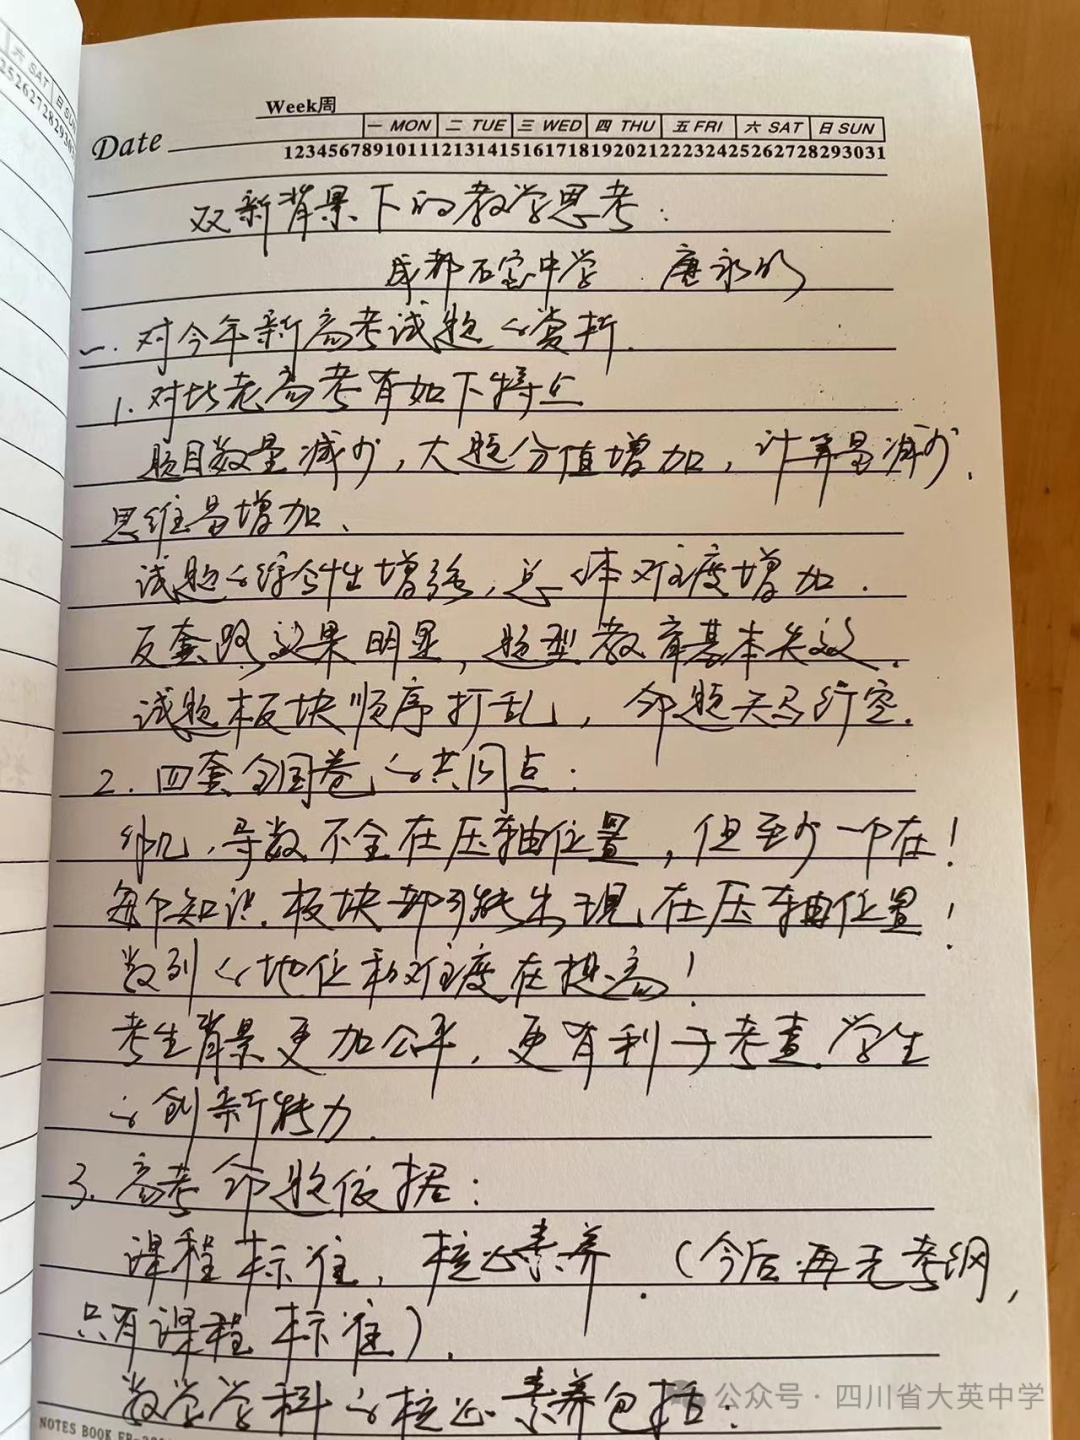 六 SAT 日 SUN
Week周
Date 一 MON 二 TUE 三 WED 四 THU 五 FRI 六 SAT 日 SUN
12345678910111213141516171819202122232425262728293031
双新背景下的教学思考:
成都石室中学 唐永明
一.对今年新高考试题的赏析.
1.对比老高考有如下特点
题目数量减少,大题分值增加,计算量减少,
思维量增加、
试题的综合性增强,总体难度增加.
反套路效果明显,题型教育基本失效.
试题板块顺序打乱,命题天马行空.
2.四套全国卷的共同点:
解几、导数不全在压轴位置,但至少一个在!
每个知识板块都可能出现在压轴位置!
数列的地位和难度在提高!
考生背景更加公平,更有利于考查学生
的创新能力.
3.高考命题依据:
课程标准,核心素养.(今后再无考纲,
只有课程标准).
数学学科的核心素养包括:
公众号·四川省大英中学
NOTES BOOK